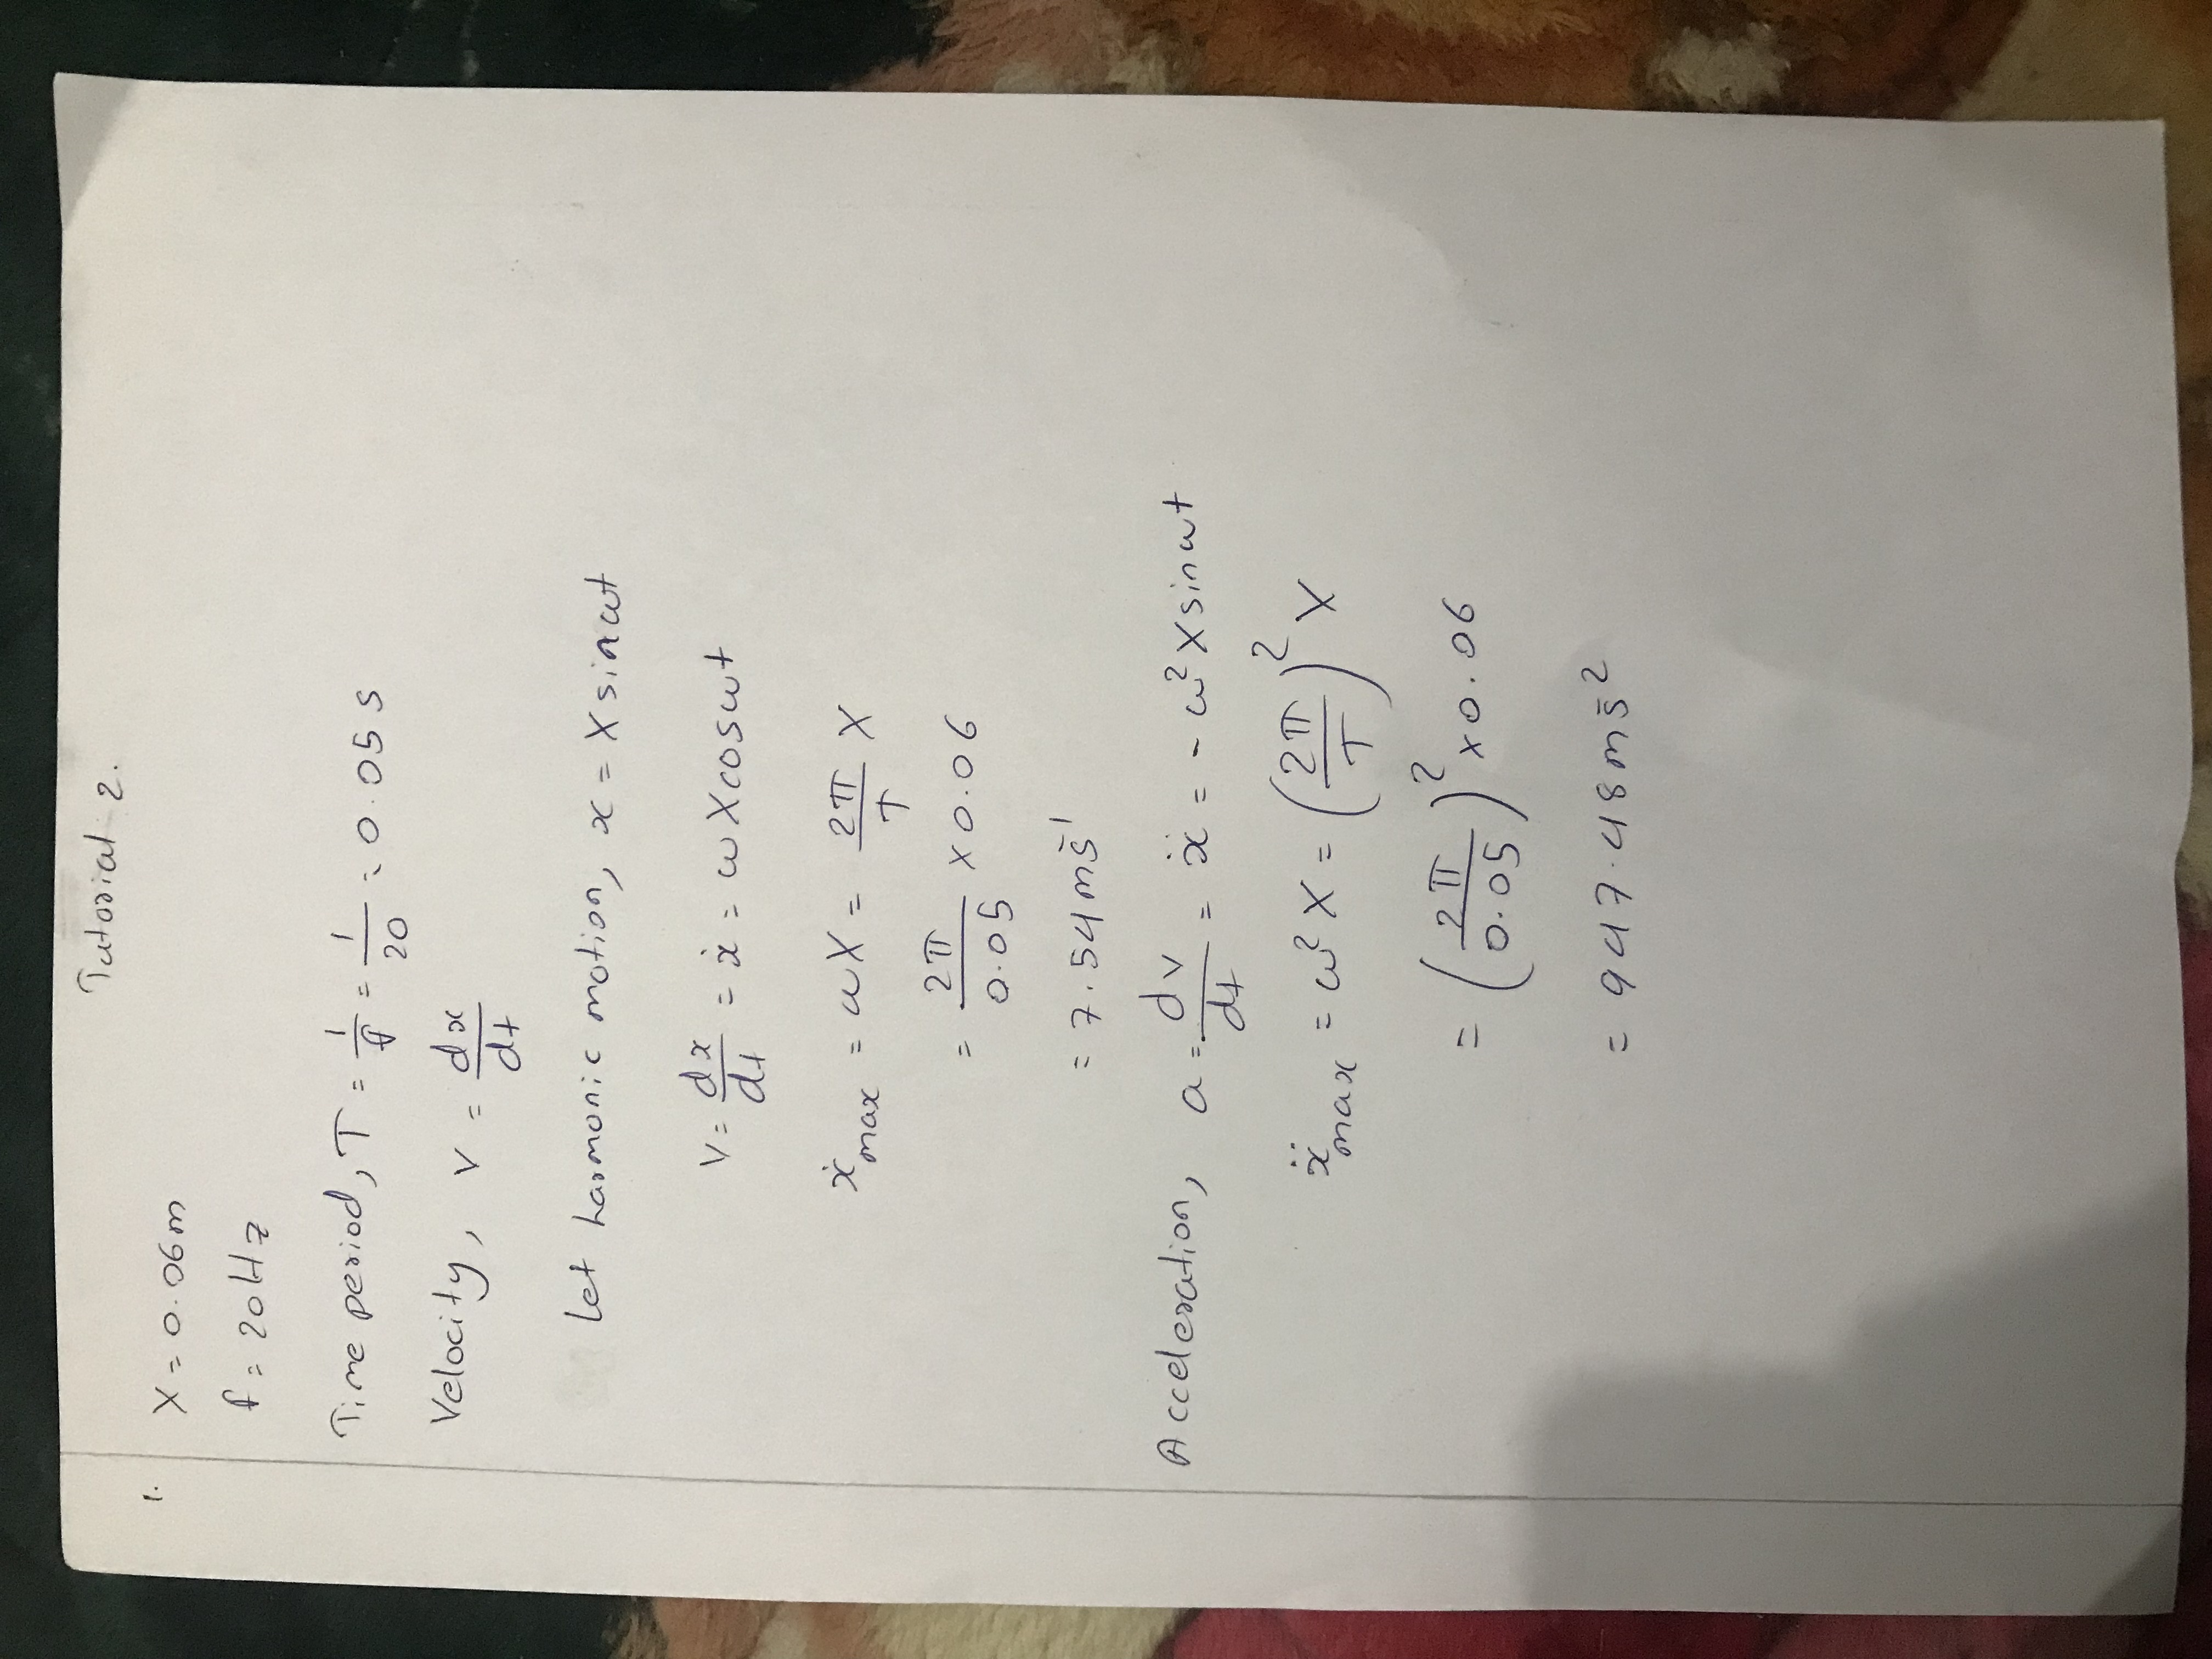 Tutorial 2.
1.
X = 0.06m
f = 20Hz
Time period, T = 1/f = 1/20 = 0.05 s
Velocity, v = dx/dt
Let harmonic motion, x = X sin ωt
V = dx/dt = ẋ = ωX cos ωt
ẋmax = ωX = 2π/T X
= 2π/0.05 × 0.06
= 7.54 ms⁻¹
Acceleration, a = dv/dt = ẍ = - ω² X sin ωt
ẍmax = ω² X = (2π/T)² X
= (2π/0.05)² × 0.06
= 947.48 ms⁻²